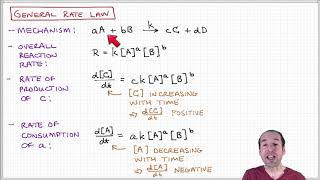 GENERAL RATE LAW
- MECHANISM: aA + bB →k cC + dD
- OVERALL REACTION RATE: R = k[A]^a[B]^b
- RATE OF PRODUCTION OF C: d[C]/dt = ck[A]^a[B]^b
[C] INCREASING WITH TIME
⇒ d[C]/dt POSITIVE
- RATE OF CONSUMPTION OF a: d[A]/dt = ak[A]^a[B]^b
[A] DECREASING WITH TIME
⇒ d[A]/dt NEGATIVE